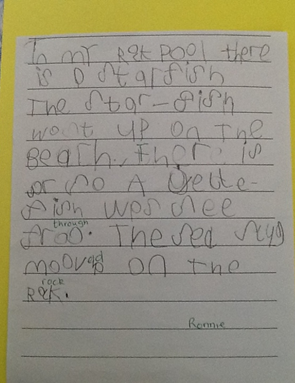 In my Rak Pool there
is a starfish
The star-fish
went up on The
Beach. Ther is
or so A Jelle-
fish was see
froo. through The sea slug
mooved on the
Rak. rock
Ronnie